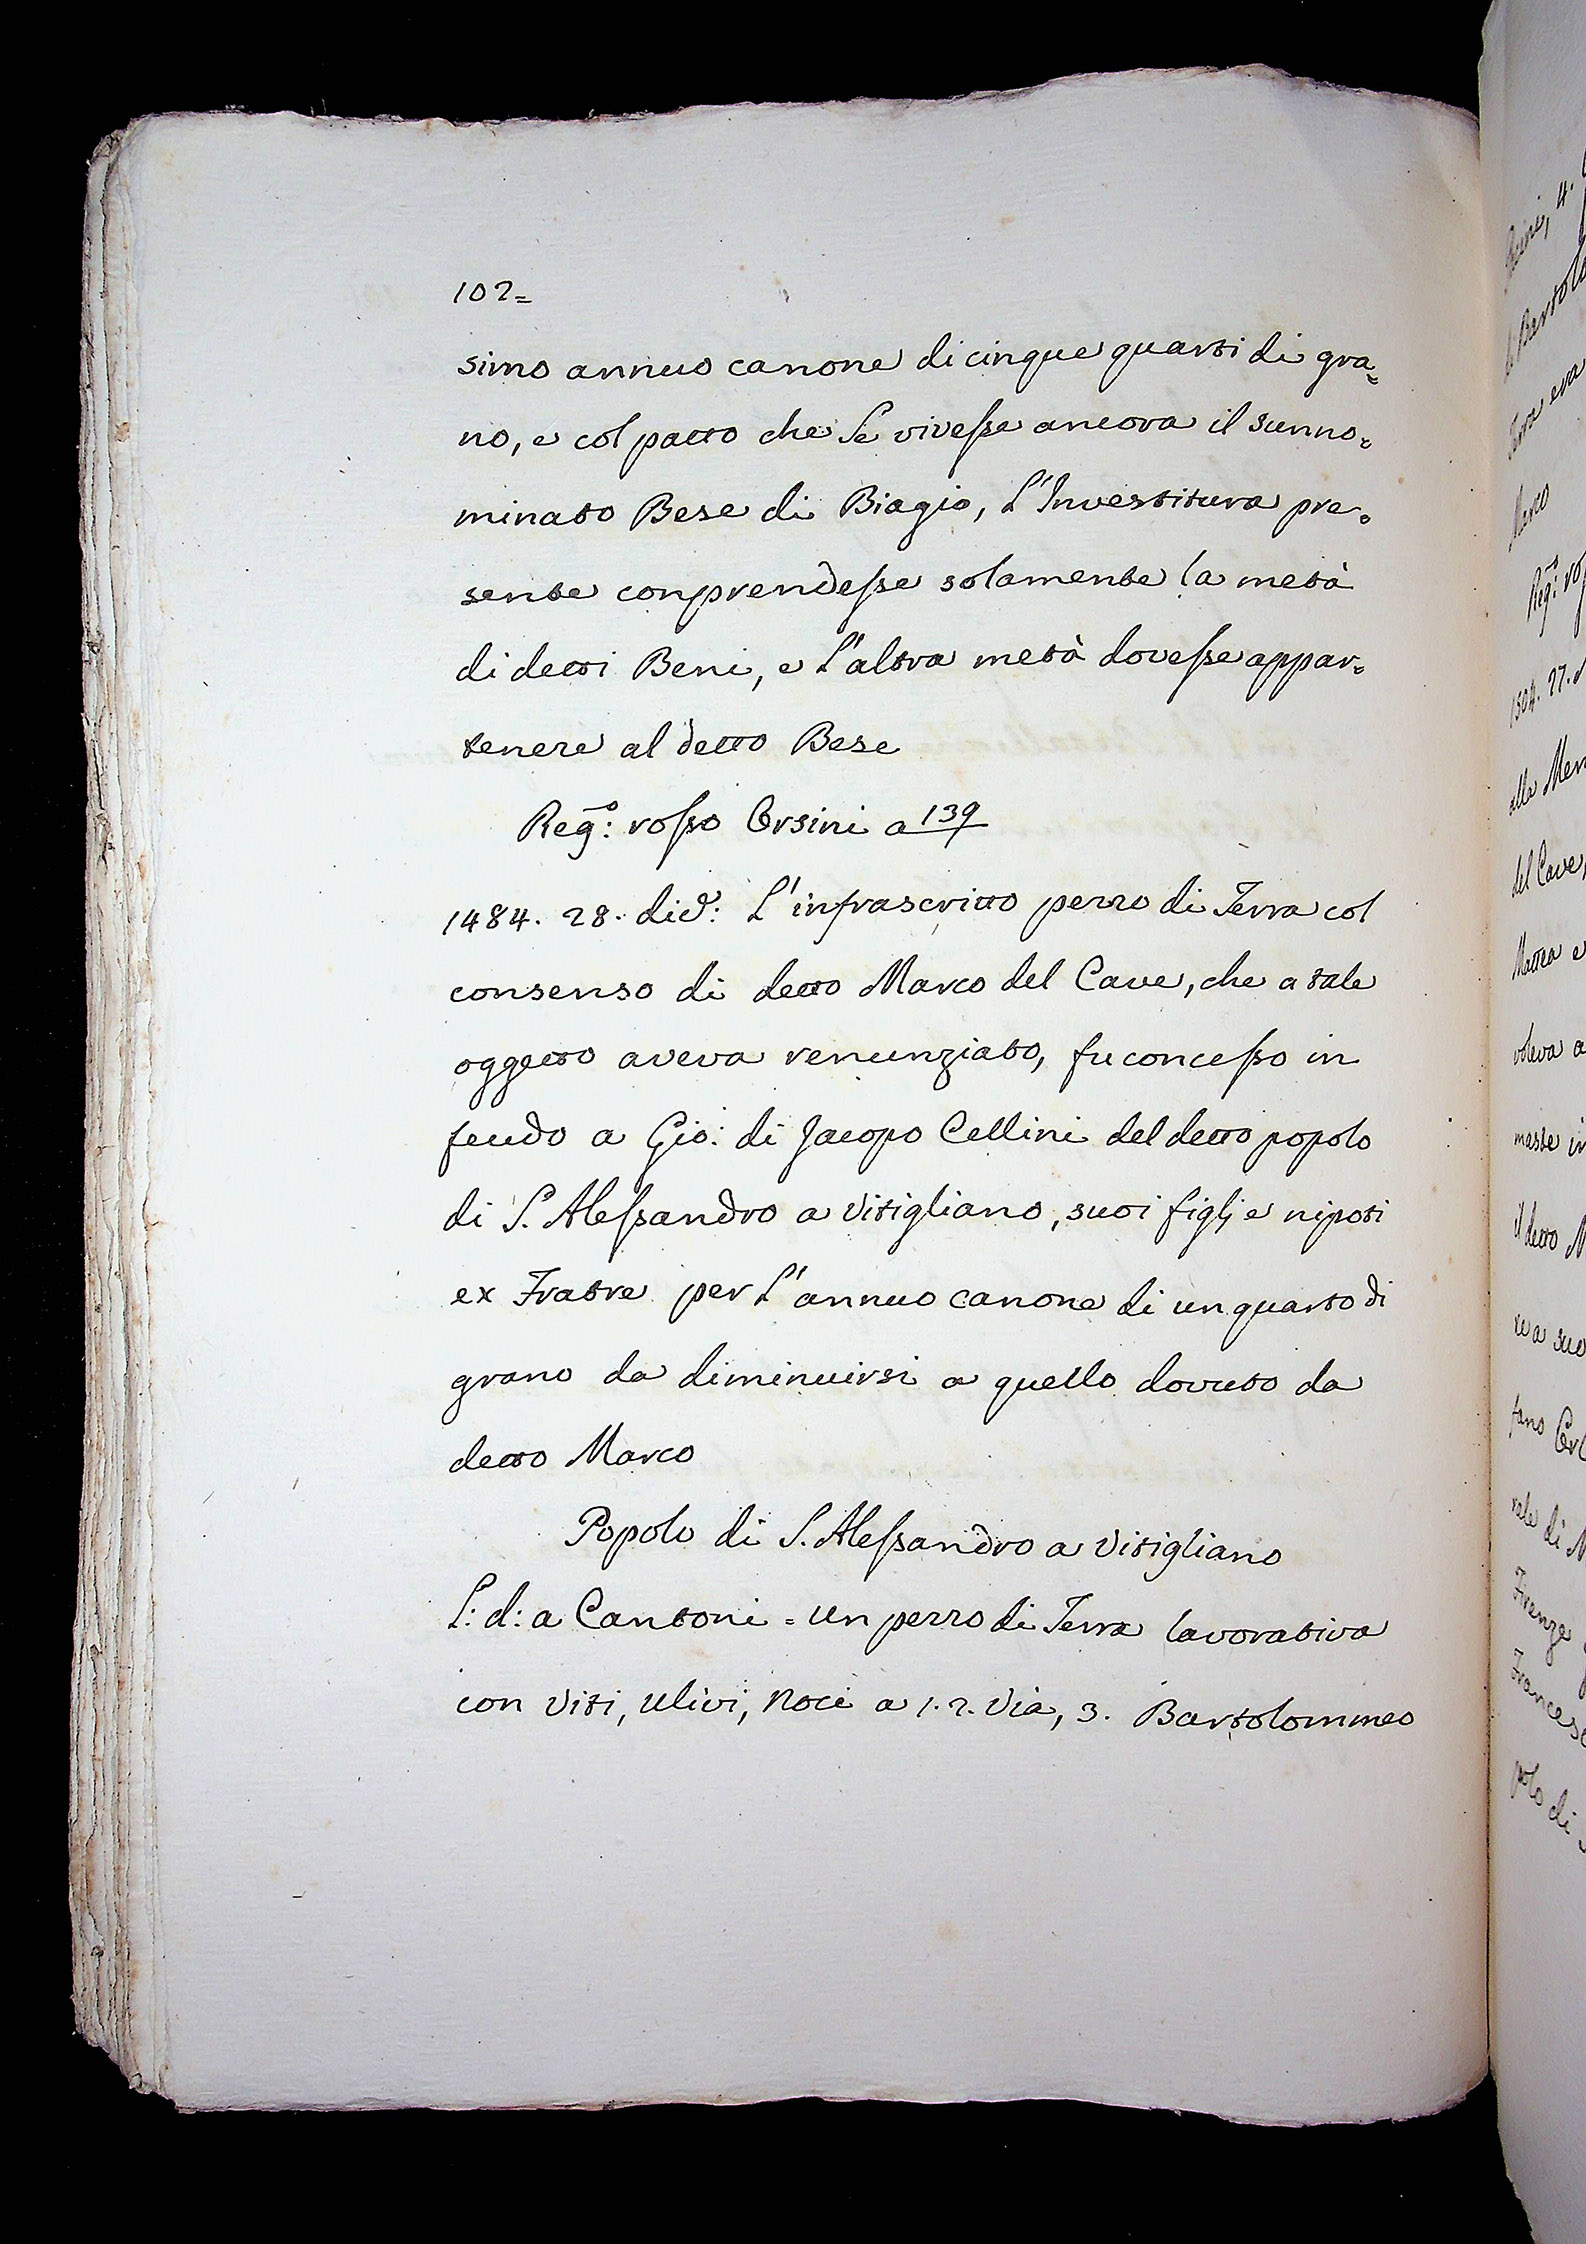 102=
simo annuo canone di cinque quarti di gra=
no, e col patto che se vivesse ancora il sunno=
minato Bese di Biagio, l'Investitura pre=
sente conprendesse solamente la metà
di detti Beni, e l'altra metà dovesse appar=
tenere al detto Bese
Reg.o: rosso Orsini a 139
1484. 28. dic.e: L'infrascritto pezzo di Terra col
consenso di detto Marco del Cave, che a tale
oggetto aveva renunziato, fu concesso in
feudo a Gio: di Jacopo Cellini del detto popolo
di S. Alessandro a Vitigliano, suoi figlj e nipoti
ex Fratre per l'annuo canone di un quarto di
grano da diminuirsi a quello dovuto da
detto Marco
Popolo di S. Alessandro a Vitigliano
L: d: a Cantoni = un pezzo di Terra lavorativa
con viti, ulivi, noci a 1. 2. via, 3. Bartolommeo
4.
Bartolo
Terra era
Marco
Reg.o: ro
1504. 27. d
alla Men
del Cave,
Mattea e
voleva a
il detto M
va suo
Firenze
Francesc
polo di